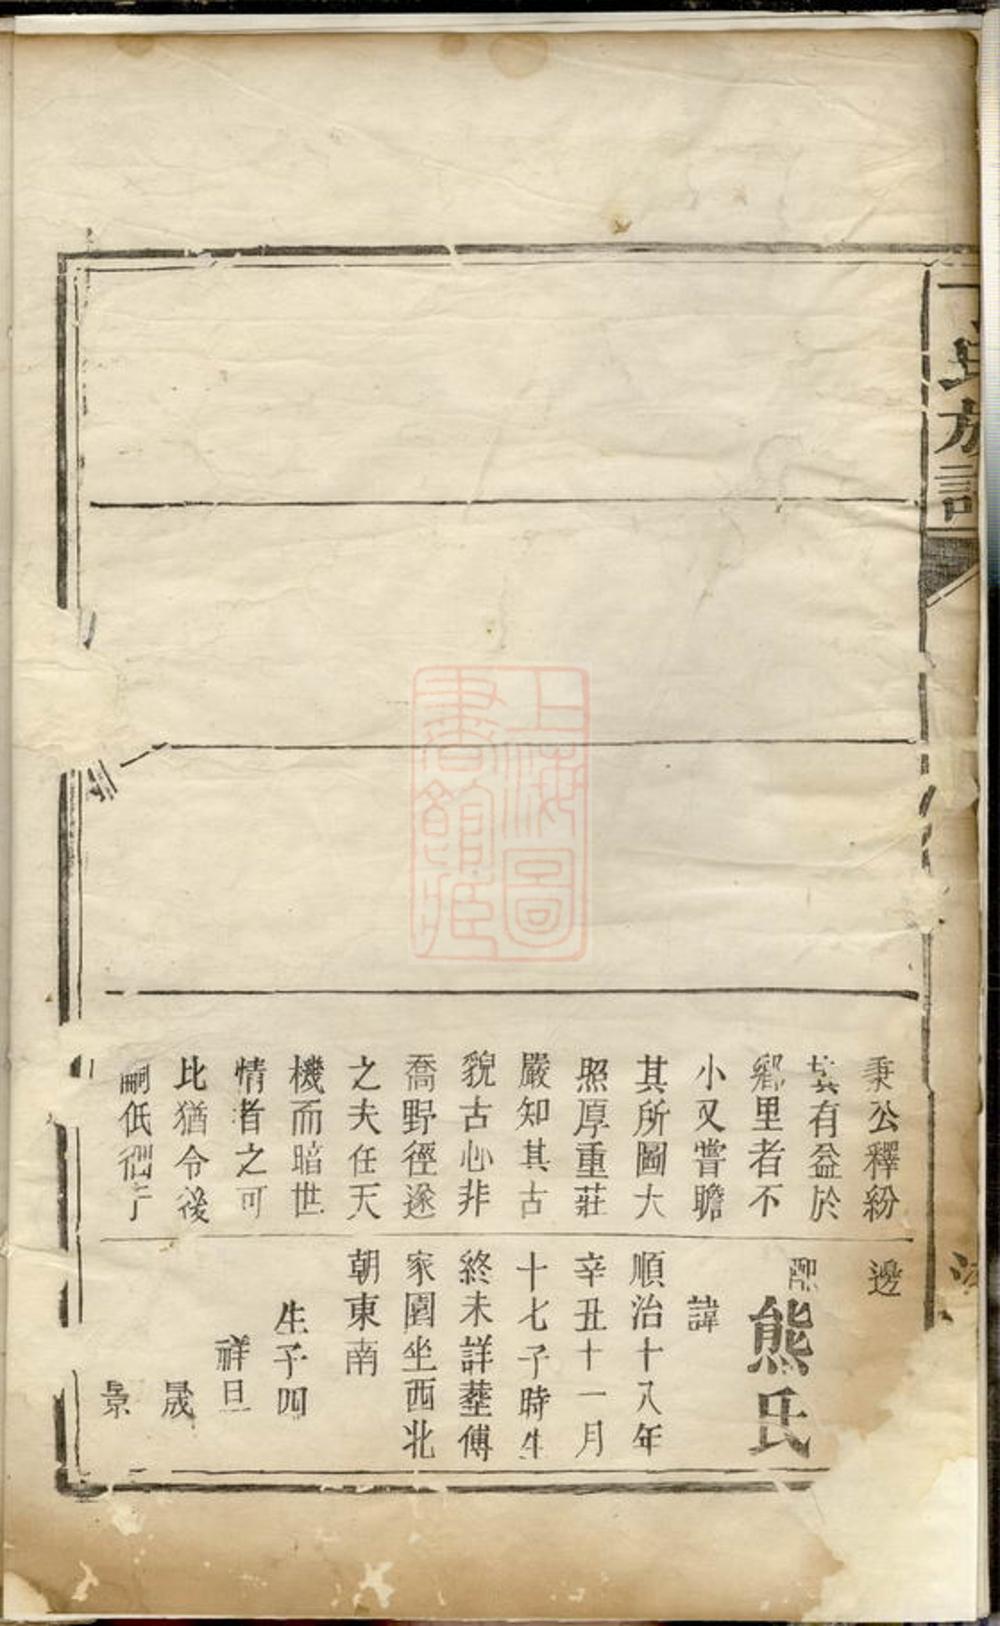 氏族譜
秉公釋紛
有益於
鄉里者不
小又嘗瞻
其所圖大
照厚重莊
嚴知其古
貌古心非
喬野徑遂
之夫任天
機而暗世
情者之可
比猶令後
嗣低徊
邊
配熊氏
諱
順治十八年
辛丑十一月
十七子時生
終未詳塟傅
家園坐西北
朝東南
生子四
祥旦
晟
景
上海圖
書館藏